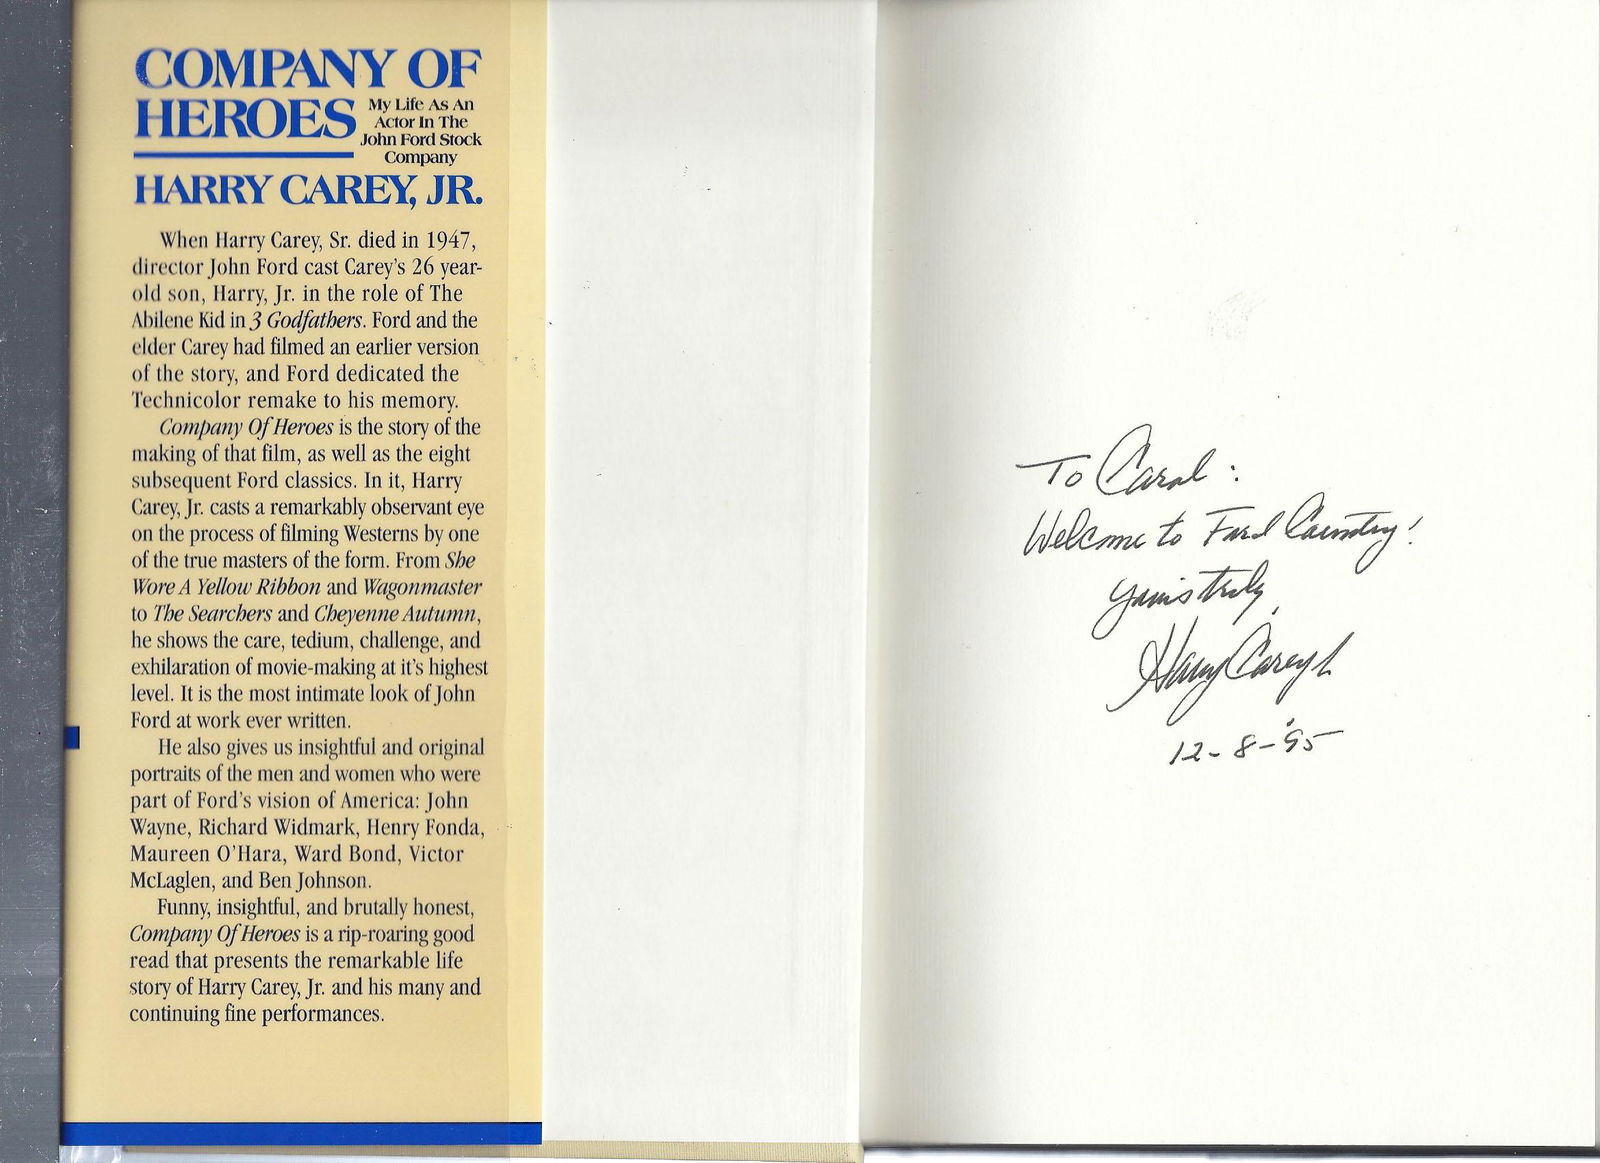 COMPANY OF
HEROES
My Life As An
Actor In The
John Ford Stock
Company
HARRY CAREY, JR.
When Harry Carey, Sr. died in 1947,
director John Ford cast Carey's 26 year-
old son, Harry, Jr. in the role of The
Abilene Kid in 3 Godfathers. Ford and the
elder Carey had filmed an earlier version
of the story, and Ford dedicated the
Technicolor remake to his memory.
Company Of Heroes is the story of the
making of that film, as well as the eight
subsequent Ford classics. In it, Harry
Carey, Jr. casts a remarkably observant eye
on the process of filming Westerns by one
of the true masters of the form. From She
Wore A Yellow Ribbon and Wagonmaster
to The Searchers and Cheyenne Autumn,
he shows the care, tedium, challenge, and
exhilaration of movie-making at it's highest
level. It is the most intimate look of John
Ford at work ever written.
He also gives us insightful and original
portraits of the men and women who were
part of Ford's vision of America: John
Wayne, Richard Widmark, Henry Fonda,
Maureen O'Hara, Ward Bond, Victor
McLaglen, and Ben Johnson.
Funny, insightful, and brutally honest,
Company Of Heroes is a rip-roaring good
read that presents the remarkable life
story of Harry Carey, Jr. and his many and
continuing fine performances.
To Carol:
Welcome to Ford Country!
Yours truly,
Harry Carey Jr
12-8-'95